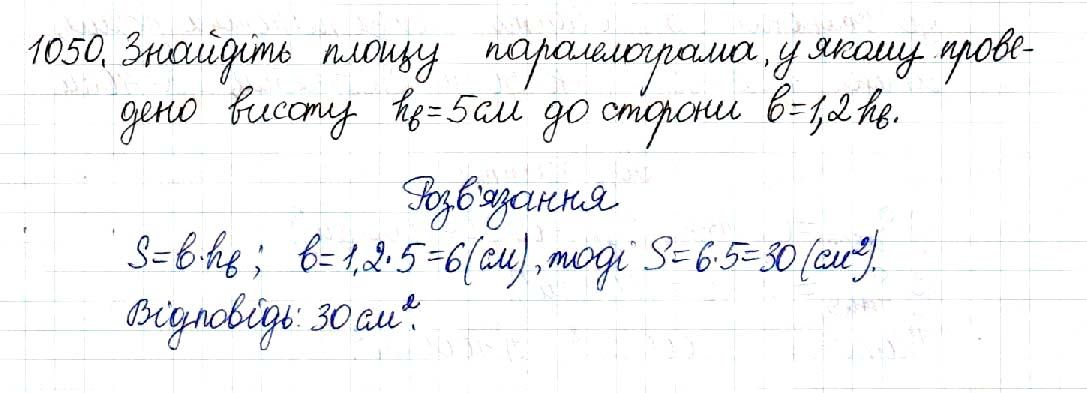 1050. Знайдіть площу паралелограма, у якому прове-
дено висоту hb=5см до сторони b=1,2hb.
Розв'язання
S=b·hb; b=1,2·5=6(см), тоді S=6·5=30(см²).
Відповідь: 30см².